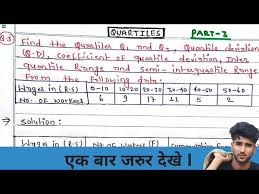 QUARTILES PART-3
Q.3 Find the Quartiles Q1 and Q3, Quartile deviation
(Q.D), coefficient of quartile deviation, Inter
quartile Range and semi-interquartile Range
From the following data:
Wages in (R.S) 0-10 10-20 20-30 30-40 40-50 50-60
No. of workers 6 9 17 11 5 2
Solution:
Wages in (R.S) No. of workers (F)
एक बार जरुर देखे ।